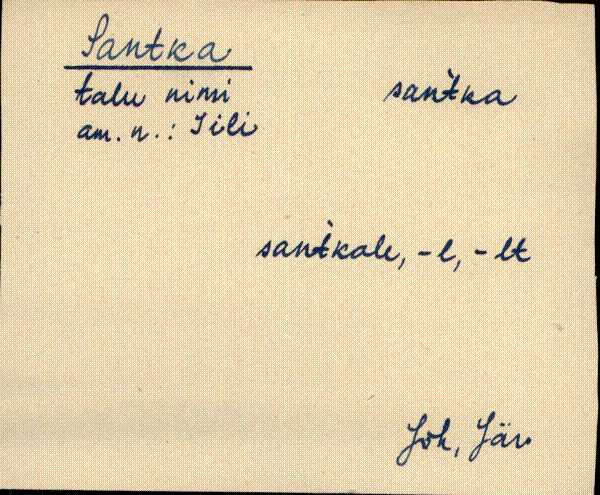 Santka
talu nimi
am. n.: Iili
san̆tka
san̆tkale, -l, -lt
Joh, Jär.